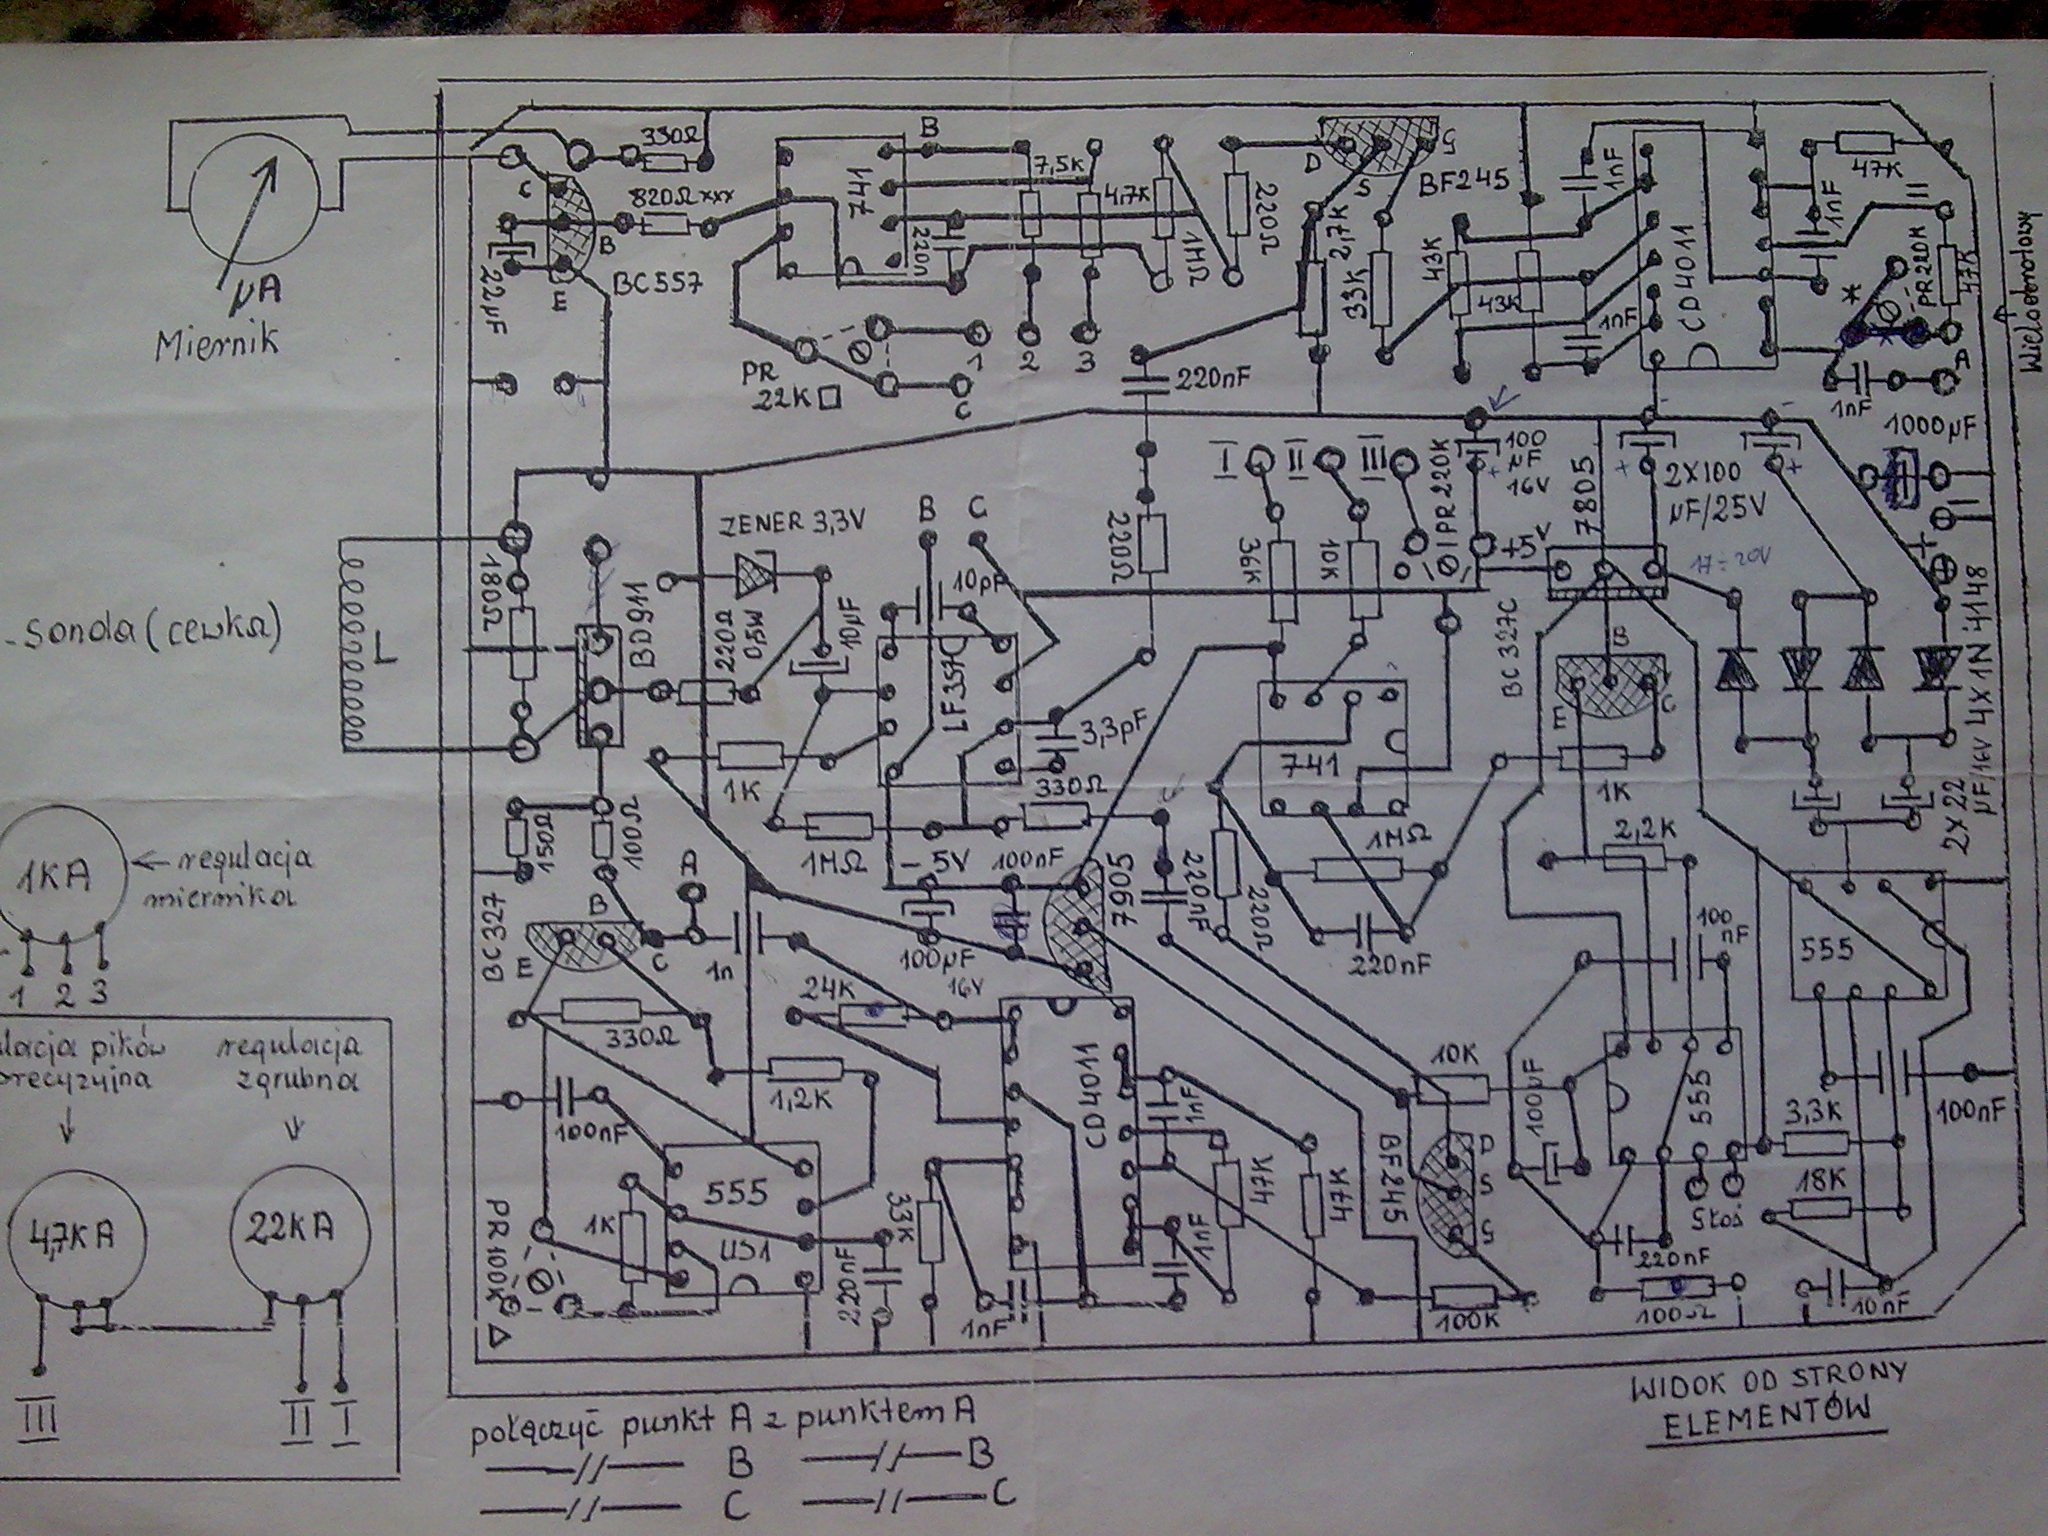 330Ω
820Ω xxx
C
B
E
BC557
22µF
µA
Miernik
741
B
220n
7,5K
4,7K
1MΩ
220Ω
D
S
G
BF245
2,7K
33K
43K
43K
1nF
1nF
CD4011
47K
1nF
II
PR220K
47K
*
A
1nF
Wieloobrotowy
PR
22K
1
2
3
C
220nF
1000µF
I
II
III
PR 220K
100
µF
16V
+
7805
2X100
µF/25V
+5V
17÷20V
ZENER 3,3V
B
C
10pF
220Ω
36K
10K
180Ω
BD911
220Ω
0,5W
10µF
LF357
-Sonda (cewka)
L
BC327C
B
E
C
4X1N4148
3,3pF
741
1K
1K
330Ω
1MΩ
1MΩ
2X22
µF/16V
2,2K
150Ω
100Ω
A
-5V
100nF
7905
220nF
220Ω
1KA
← regulacja
miernika
1 2 3
BC327
B
E
C
1n
100µF
16V
220nF
100
nF
555
330Ω
24K
1,2K
CD4011
10K
100µF
555
3,3K
100nF
regulacja
zgrubna
100nF
555
US1
1K
33K
220nF
1nF
47K
47K
1nF
1nF
BF245
D
S
G
18K
220nF
100Ω
100K
10nF
PR100K
4,7KA
22KA
III
II I
połączyć punkt A z punktem A
—//— B —//— B
—//— C —//— C
WIDOK OD STRONY
ELEMENTÓW